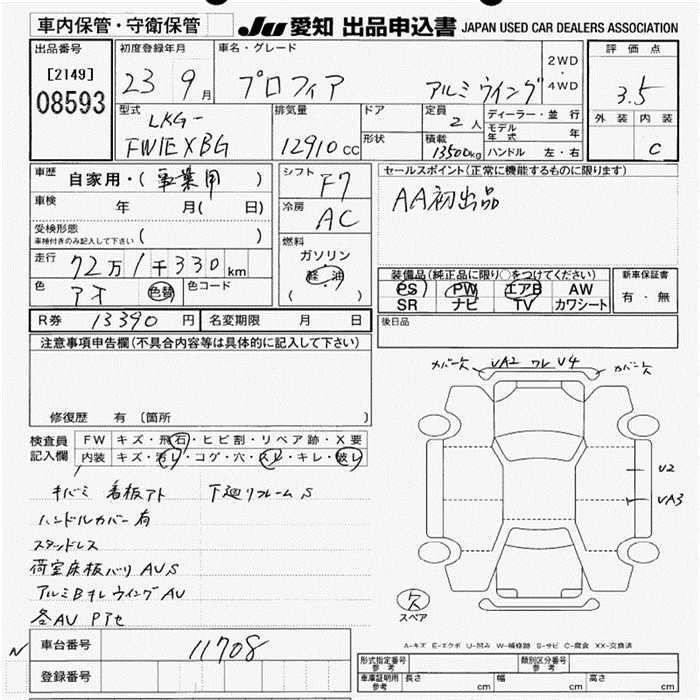 車内保管・守衛保管
JU 愛知 出品申込書 JAPAN USED CAR DEALERS ASSOCIATION
出品番号
[2149]
08593
初度登録年月
23 9月
車名・グレード
プロフィア アルミウイング
2WD
・
4WD
評価点
3.5
外装 内装
C
型式
LKG-
FW1EXBG
排気量
12910 CC
ドア
形状
定員
2人
積載
13500kg
ディーラー・並行
モデル年式 年
ハンドル 左・右
車歴
自家用・(事業用)
車検
年 月( 日)
受検形態
車検付きのみ記入して下さい ( )
走行
72万1千330km
色
アオ 色替
色コード
シフト
F7
冷房
AC
燃料
ガソリン
軽油
( )
セールスポイント(正常に機能するものに限ります)
AA初出品
装備品(純正品に限り○をつけてください)
PS PW エアB AW
SR ナビ TV カワシート
新車保証書
有・無
R券 13390円
名変期限 月 日
後日品
注意事項申告欄(不具合内容等は具体的に記入して下さい)
修復歴 有 〔箇所 〕
検査員
記入欄
FW キズ・飛石・ヒビ割・リペア跡・X要
内装 キズ・汚レ・コゲ・穴・スレ・キレ・破レ
キバミ 看板アト 下廻リフレームS
ハンドルカバー有
スタッドレス
荷室床板バリ AUS
アルミBキレ ウイングAU
各AU PTセ
カバー欠 UA2 ワレ U4 カバー欠
U2
UA3
欠
スペア
A-キズ E-エクボ U-凹み W-補修跡 S-サビ C-腐食 XX-交換済
N
車台番号
11708
登録番号
形式指定番号
参考
類別区分番号
参考
車庫証明用
参考
長さ cm 幅 cm 高さ cm